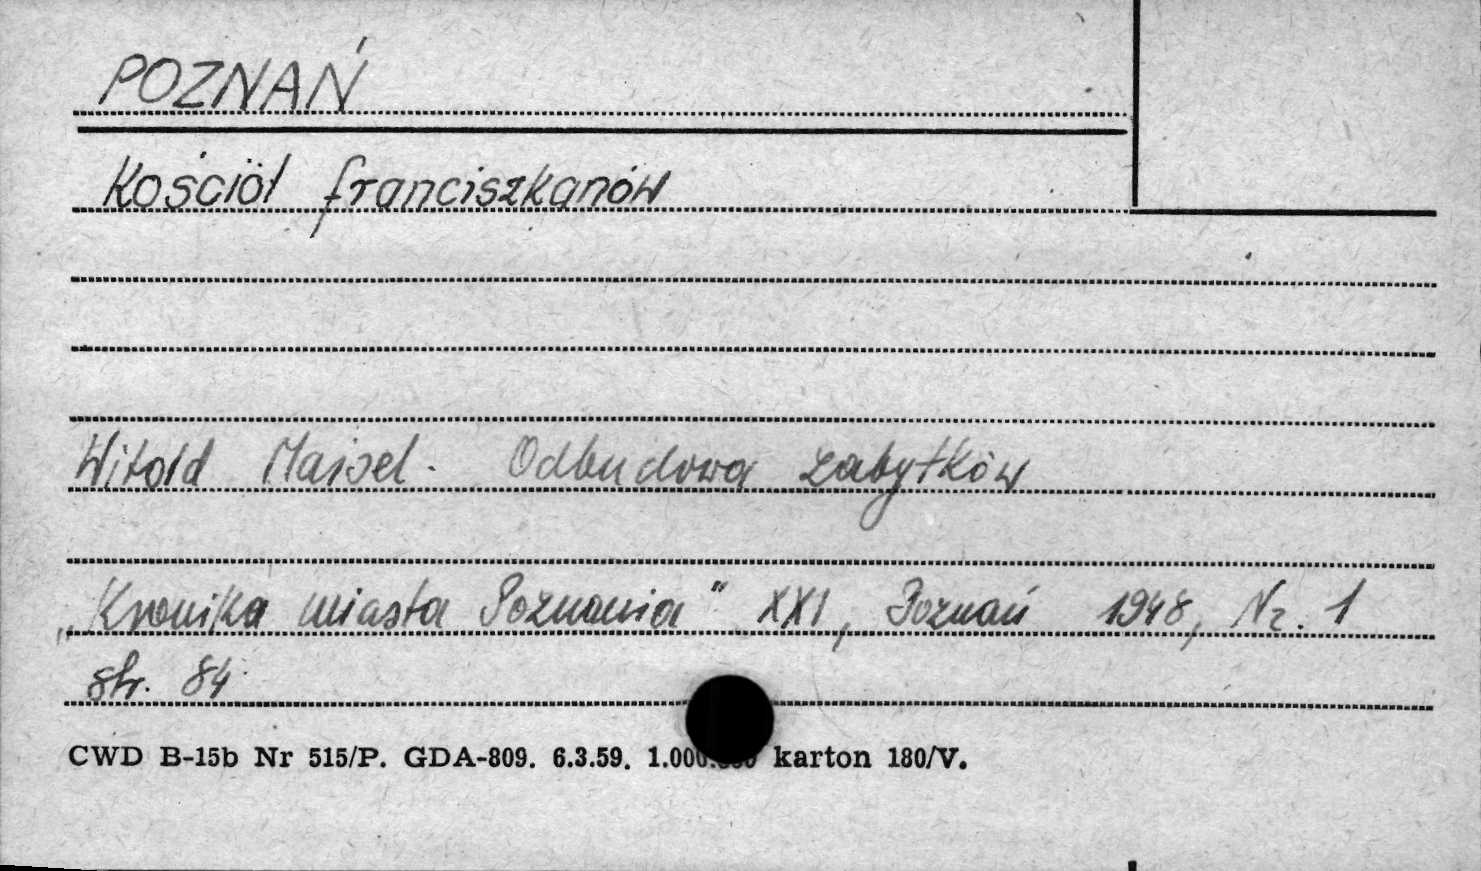 POZNAŃ
Kościół franciszkanów
Witold Maisel. Odbudowa zabytków
„Kronika miasta Poznania" XXI, Poznań 1948, Nr. 1
str. 84
CWD B-15b Nr 515/P. GDA-809. 6.3.59. karton 180/V.